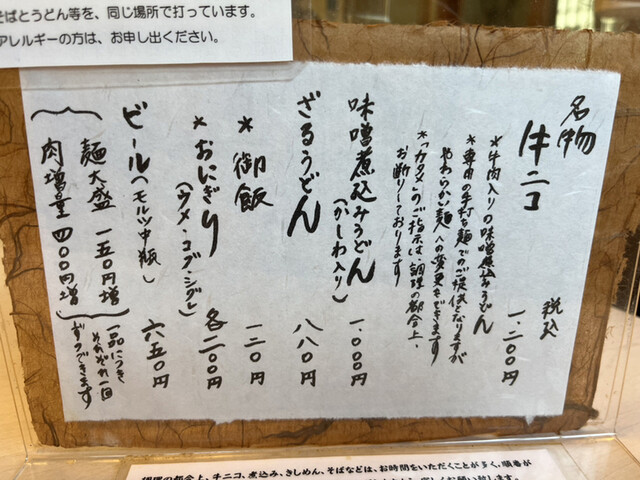 そばとうどん等を、同じ場所で打っています。
アレルギーの方は、お申し出ください。
名物
牛ニコ 税込 一、二〇〇円
*牛肉入りの味噌煮込みうどん
*専用の手打ち麺でのご提供となりますが
やわらかい麺への変更もできます
*「カタメ」のご指示は、調理の都合上、
お断りしております
味噌煮込みうどん 一、〇〇〇円
(かしわ入り)
ざるうどん 八八〇円
*御飯 一二〇円
*おにぎり 各二〇〇円
(ウメ・コブ・シグレ)
ビール(モルツ中瓶) 六五〇円
麺大盛 一五〇円増
肉増量 四〇〇円増
一品につき
それぞれ一回
ずつできます
調理の都合上、牛ニコ、煮込み、きしめん、そばなどは、お時間をいただくことが多く、順番が